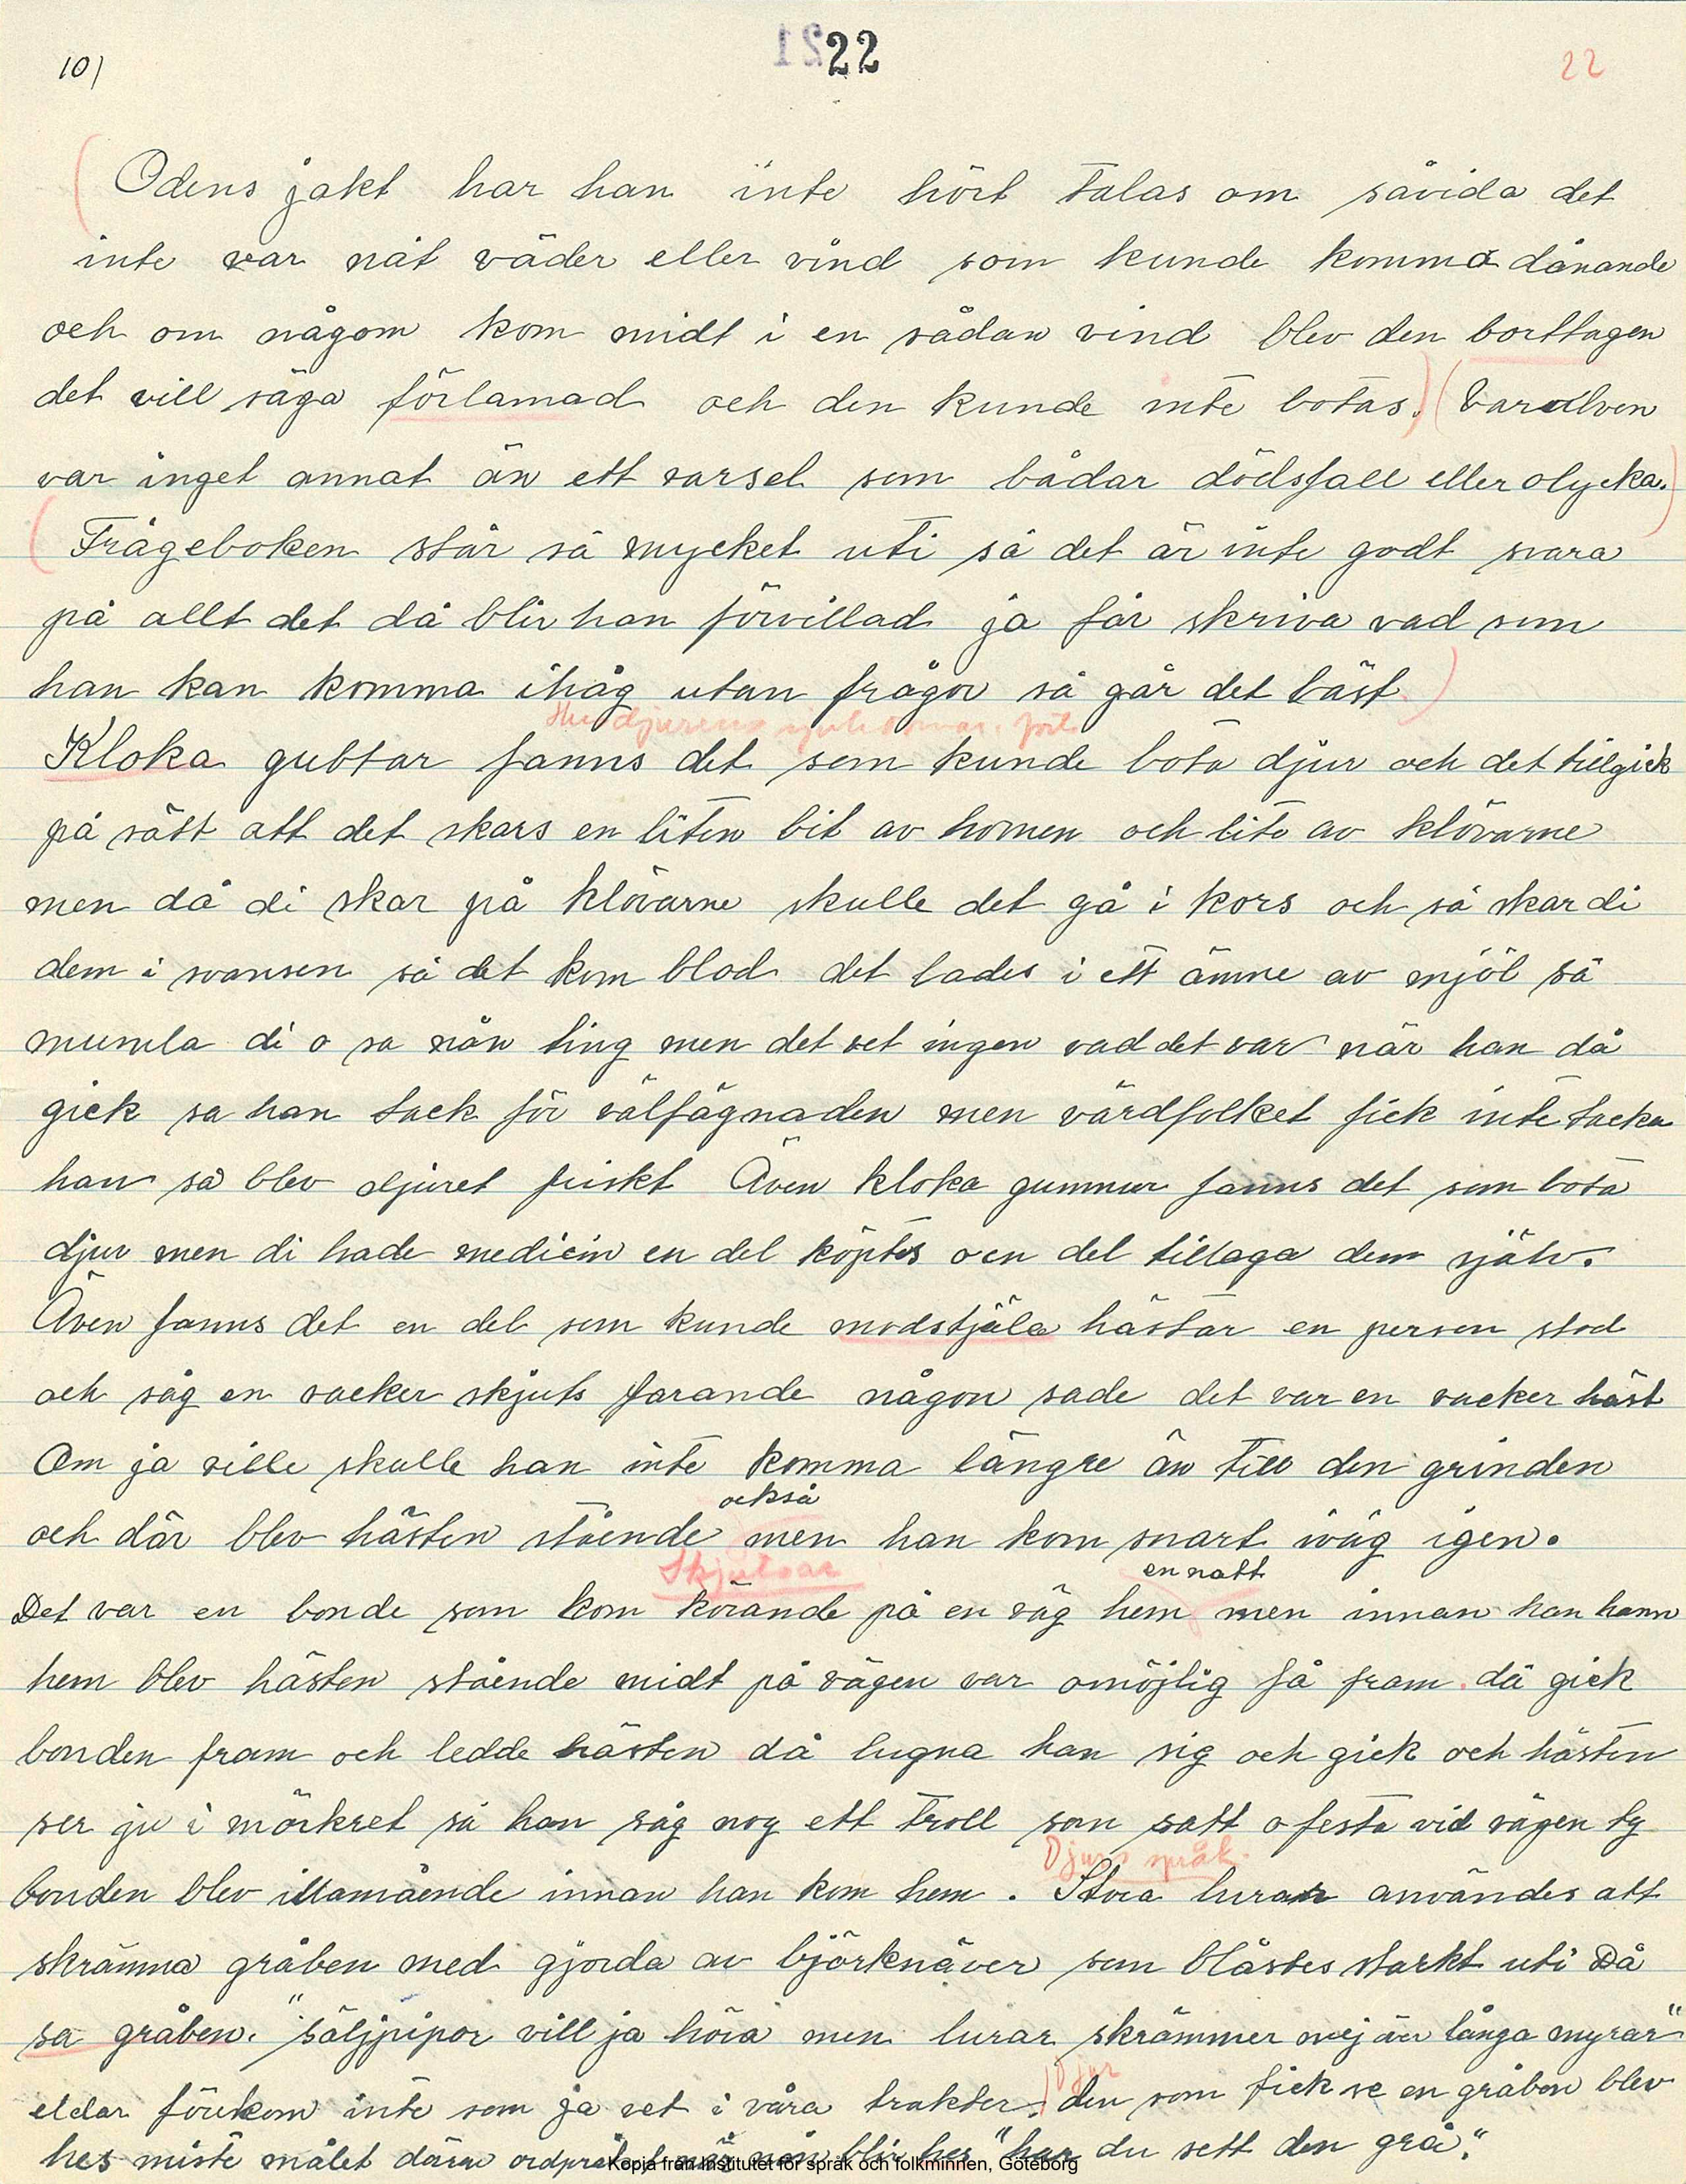 10)
22
22
Odens jakt har han inte hört talas om såvida det
inte var nåt väder eller vind som kunde komma dånande
och om någom kom midt i en sådan vind blev den borttagen
det vill säga förlamad och den kunde inte botas. Varulven
var inget annat än ett varsel som bådar dödsfall eller olycka.
Frågeboken står så mycket uti så det är inte godt svara
på allt det då blir han förvillad ja får skriva vad som
han kan komma ihåg utan frågor så går det bäst
Kloka gubbar fanns det som kunde bota djur och det tillgick
på sätt att det skars en liten bit av hornen och lite av klövarne
men då di skar på klövarne skulle det gå i kors och så skar di
dem i svansen så det kom blod det lades i ett ämne av mjöl så
mumla di o sa nån ting men det vet ingen vad det var när han då
gick sa han tack för välfägnaden men värdfolket fick inte tacka
han så blev djuret friskt Även kloka gummur fanns det som bota
djur men di hade medicin en del köptes o en del tillaga dem själv.
Även fanns det en del som kunde modstjäla hästar en person stod
och såg en vacker skjuts farande någon sade det var en vacker häst
Om ja ville skulle han inte komma längre än till den grinden
också
och där blev hästen stående men han kom snart iväg igen.
Skjutsar
en natt
Det var en bonde som kom körande på en väg hem men innan han hann
hem blev hästen stående midt på vägen var omöjlig få fram. då gick
bonden fram och ledde hästen då lugna han sig och gick och hästen
ser ju i mörkret så han såg nog ett troll som satt o festa vid vägen ty
Djurs språk.
bonden blev illamående innan han kom hem. Stora lurar användes att
skrämma gråben med gjorda av björknäver som blåstes starkt uti Då
sa gråben. "säljpipor vill ja höra men lurar skrämmer mej över långa myrar"
Djur
eldar förekom inte som ja vet i våra trakter. den som fick se en gråben blev
hes miste målet därav ordspråket när nån blir hes "har du sett den grå."
Kopja från Institutet för språk och folkminnen, Göteborg